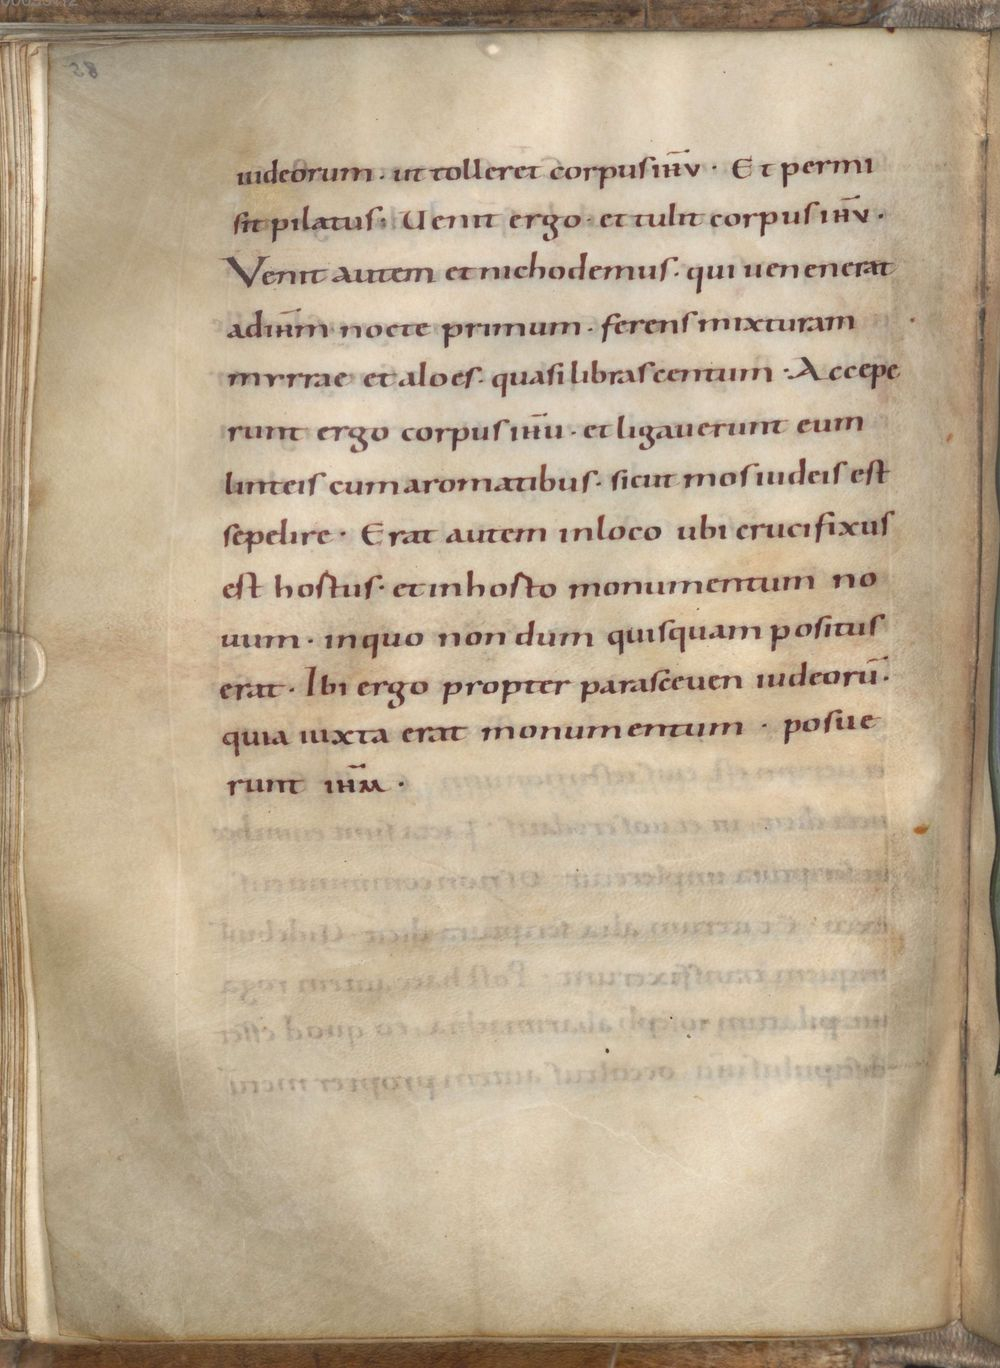 iudeorum · ut tolleret corpus ih̅v · Et permi
sit pilatus; Uenit ergo · et tulit corpus ih̅v ·
Venit autem et nichodemus · qui uenenerat
ad ih̅m nocte primum · ferens mixturam
myrrae et aloes · quasi libras centum · Accepe
runt ergo corpus ih̅u · et ligauerunt eum
linteis cum aromatibus · sicut mos iudeis est
sepelire · Erat autem in loco ubi crucifixus
est hostus · et in hosto monumentum no
uum · in quo non dum quisquam positus
erat · Ibi ergo propter parasceuen iudeorū ·
quia iuxta erat monumentum · posue
runt ih̅m ·